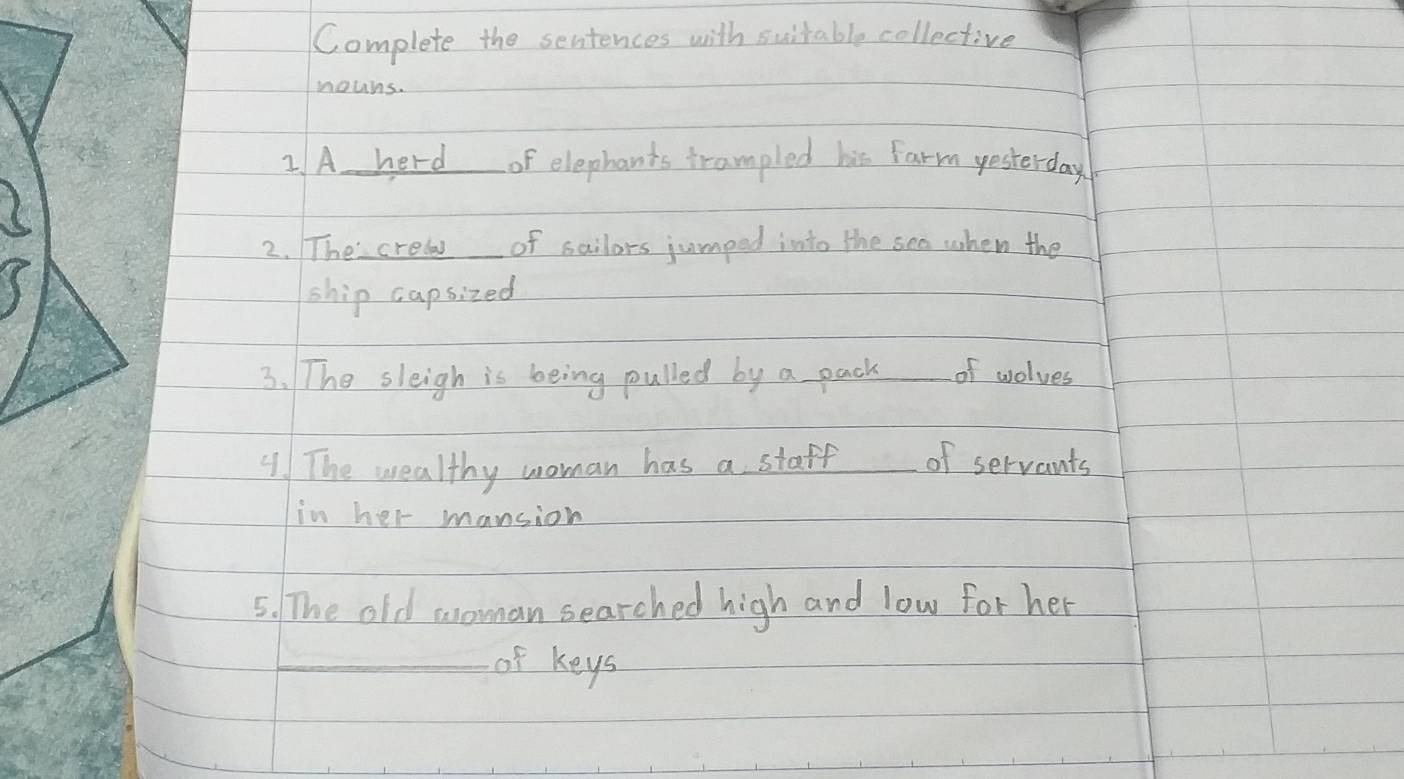 Complete the sentences with suitable collective
nouns.
1. A herd of elephants trampled his farm yesterday.
2. The crew of sailors jumped into the sea when the
ship capsized
3. The sleigh is being pulled by a pack of wolves
4. The wealthy woman has a staff of servants
in her mansion
5. The old woman searched high and low for her
________ of keys